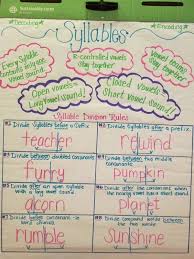 Decoding
Encoding
Syllables
Every Syllable contains only one vowel sound.
R-controlled vowels stay together
Vowel teams stay together.
Open Vowels = Long vowel sound!
Closed Vowels = Short vowel sound!
Syllable Division Rules
Divide syllables before a suffix.
teacher
Divide syllables after a prefix.
rewind
Divide between doubled consonants.
furry
Divide between two middle consonants.
pumpkin
Divide after an open syllable with a long vowel sound.
acorn
planet
Divide before consonant -le
rumble
Divide compound words between the two words.
Sunshine